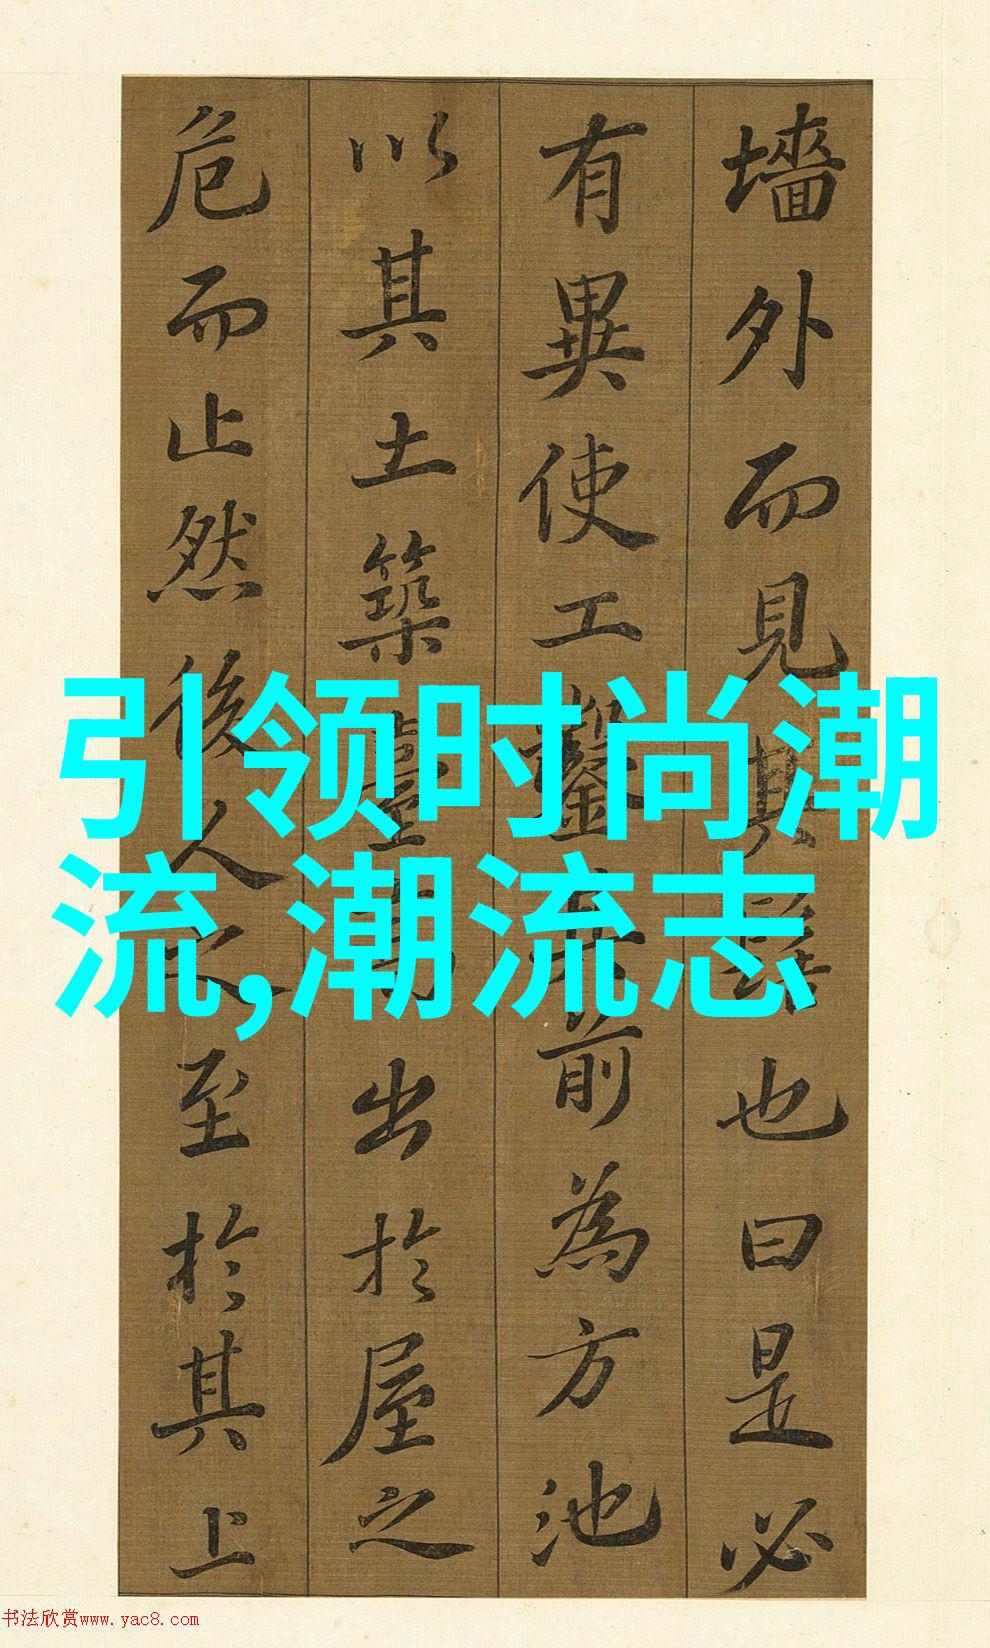 墻外而見其髻也曰是必
有異使工鑿其前為方池
以其土築臺高出於屋之
危而止然後人之至於其上
引领时尚潮
流,潮流志
书法欣赏www.yac8.com